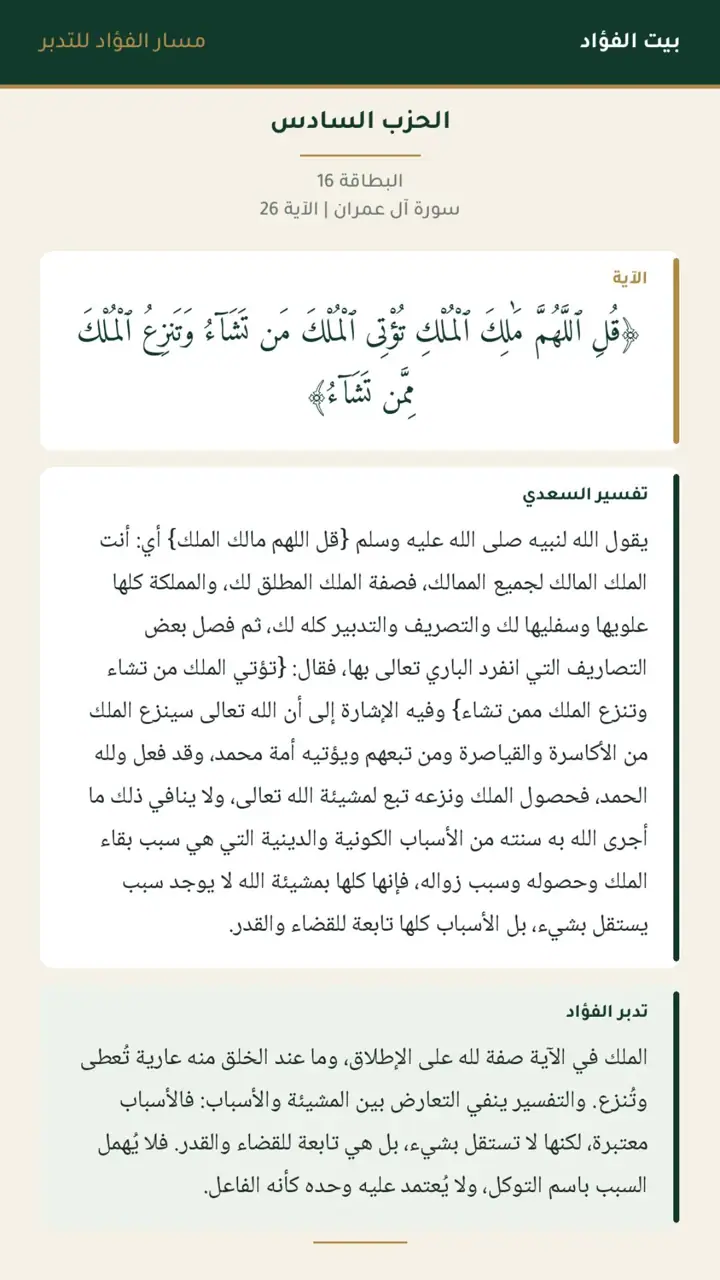 بيت الفؤاد
مسار الفؤاد للتدبر
الحزب السادس
البطاقة 16
سورة آل عمران | الآية 26
الآية
﴿قُلِ ٱللَّهُمَّ مَٰلِكَ ٱلْمُلْكِ تُؤْتِى ٱلْمُلْكَ مَن تَشَآءُ وَتَنزِعُ ٱلْمُلْكَ
مِمَّن تَشَآءُ﴾
تفسير السعدي
يقول الله لنبيه صلى الله عليه وسلم {قل اللهم مالك الملك} أي: أنت
الملك المالك لجميع الممالك، فصفة الملك المطلق لك، والمملكة كلها
علويها وسفليها لك والتصريف والتدبير كله لك، ثم فصل بعض
التصاريف التي انفرد الباري تعالى بها، فقال: {تؤتي الملك من تشاء
وتنزع الملك ممن تشاء} وفيه الإشارة إلى أن الله تعالى سينزع الملك
من الأكاسرة والقياصرة ومن تبعهم ويؤتيه أمة محمد، وقد فعل ولله
الحمد، فحصول الملك ونزعه تبع لمشيئة الله تعالى، ولا ينافي ذلك ما
أجرى الله به سنته من الأسباب الكونية والدينية التي هي سبب بقاء
الملك وحصوله وسبب زواله، فإنها كلها بمشيئة الله لا يوجد سبب
يستقل بشيء، بل الأسباب كلها تابعة للقضاء والقدر.
تدبر الفؤاد
الملك في الآية صفة لله على الإطلاق، وما عند الخلق منه عارية تُعطى
وتُنزع. والتفسير ينفي التعارض بين المشيئة والأسباب: فالأسباب
معتبرة، لكنها لا تستقل بشيء، بل هي تابعة للقضاء والقدر. فلا يُهمل
السبب باسم التوكل، ولا يُعتمد عليه وحده كأنه الفاعل.